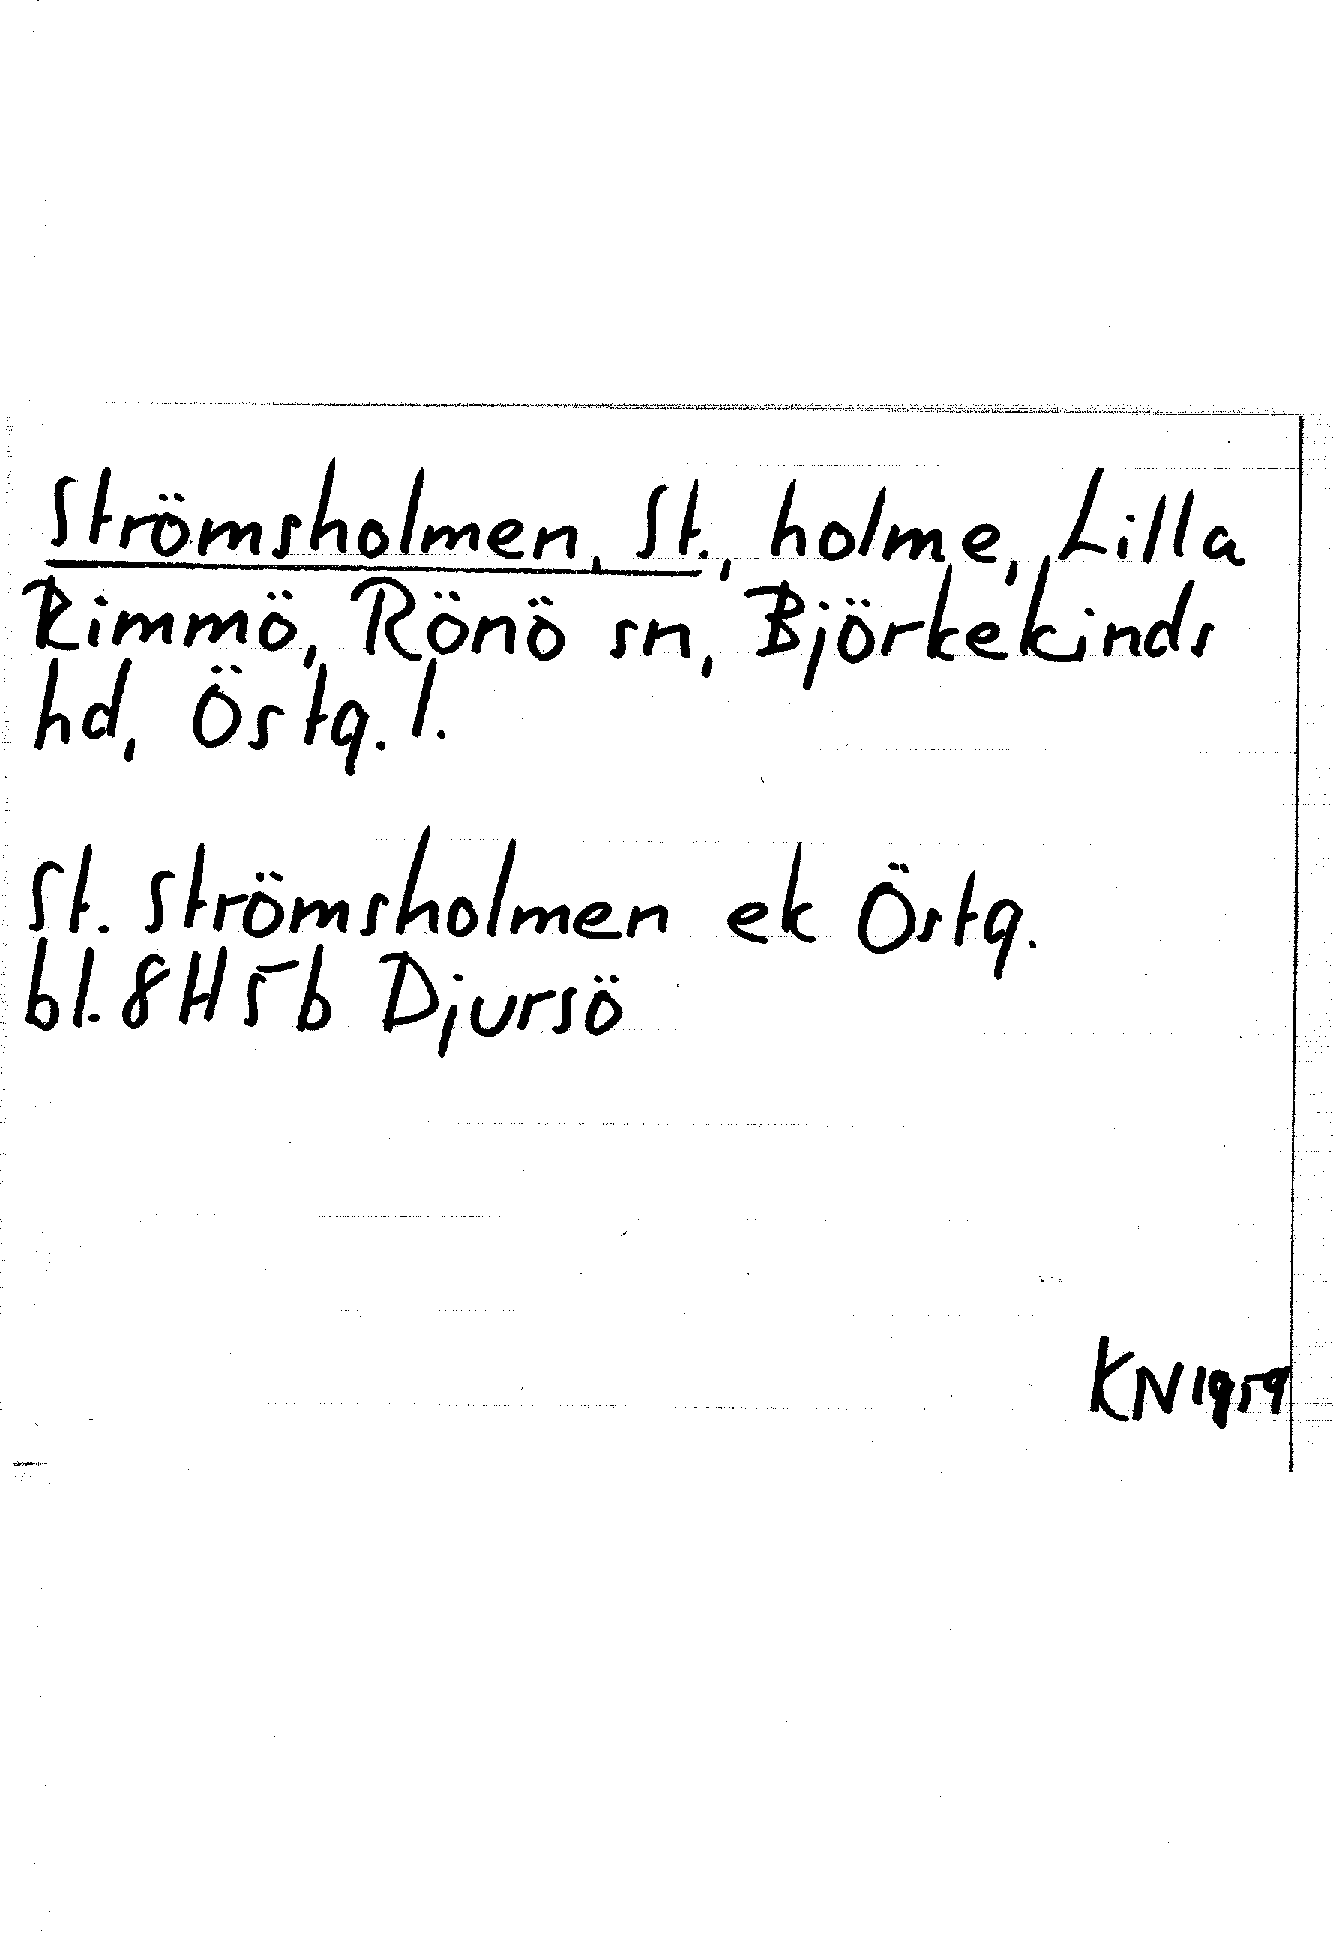 Strömsholmen, St., holme, Lilla
Rimmö, Rönö sn, Björkekinds
hd, Östg. l.
St. Strömsholmen ek Östg.
bl. 8H5b Djursö
KN 1959